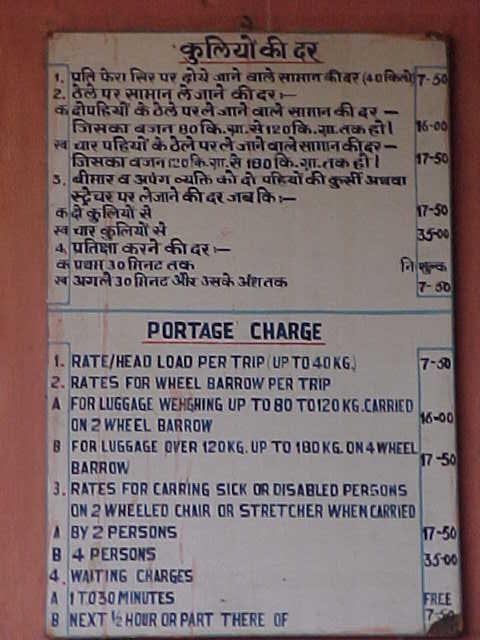 कुलियों की दर
1. प्रति फेरा सिर पर ढोये जाने वाले सामान की दर (40 किलो) 7-50
2. ठेले पर सामान ले जाने की दर :—
क दोपहियों के ठेले पर ले जाने वाले सामान की दर —
जिसका वजन 80 कि.ग्रा. से 120 कि.ग्रा. तक हो। 16-00
ख चार पहियों के ठेले पर ले जाने वाले सामान की दर—
जिसका वजन 120 कि.ग्रा. से 180 कि.ग्रा. तक हो। 17-50
3. बीमार व अपंग व्यक्ति को दो पहियों की कुर्सी अथवा
स्ट्रेचर पर लेजाने की दर जब कि :—
क दो कुलियों से 17-50
ख चार कुलियों से 35-00
4. प्रतिक्षा करने की दर :—
क प्रथम 30 मिनट तक नि शुल्क
ख अगले 30 मिनट और उसके अंश तक 7-50
PORTAGE CHARGE
1. RATE/HEAD LOAD PER TRIP (UP TO 40 KG.) 7-50
2. RATES FOR WHEEL BARROW PER TRIP
A FOR LUGGAGE WEHGHING UP TO 80 TO 120 KG. CARRIED
ON 2 WHEEL BARROW 16-00
B FOR LUGGAGE OVER 120 KG. UP TO 180 KG. ON 4 WHEEL
BARROW 17-50
3. RATES FOR CARRING SICK OR DISABLED PERSONS
ON 2 WHEELED CHAIR OR STRETCHER WHEN CARRIED
A BY 2 PERSONS 17-50
B 4 PERSONS 35-00
4. WAITING CHARGES
A 1 TO 30 MINUTES FREE
B NEXT ½ HOUR OR PART THERE OF 7-50